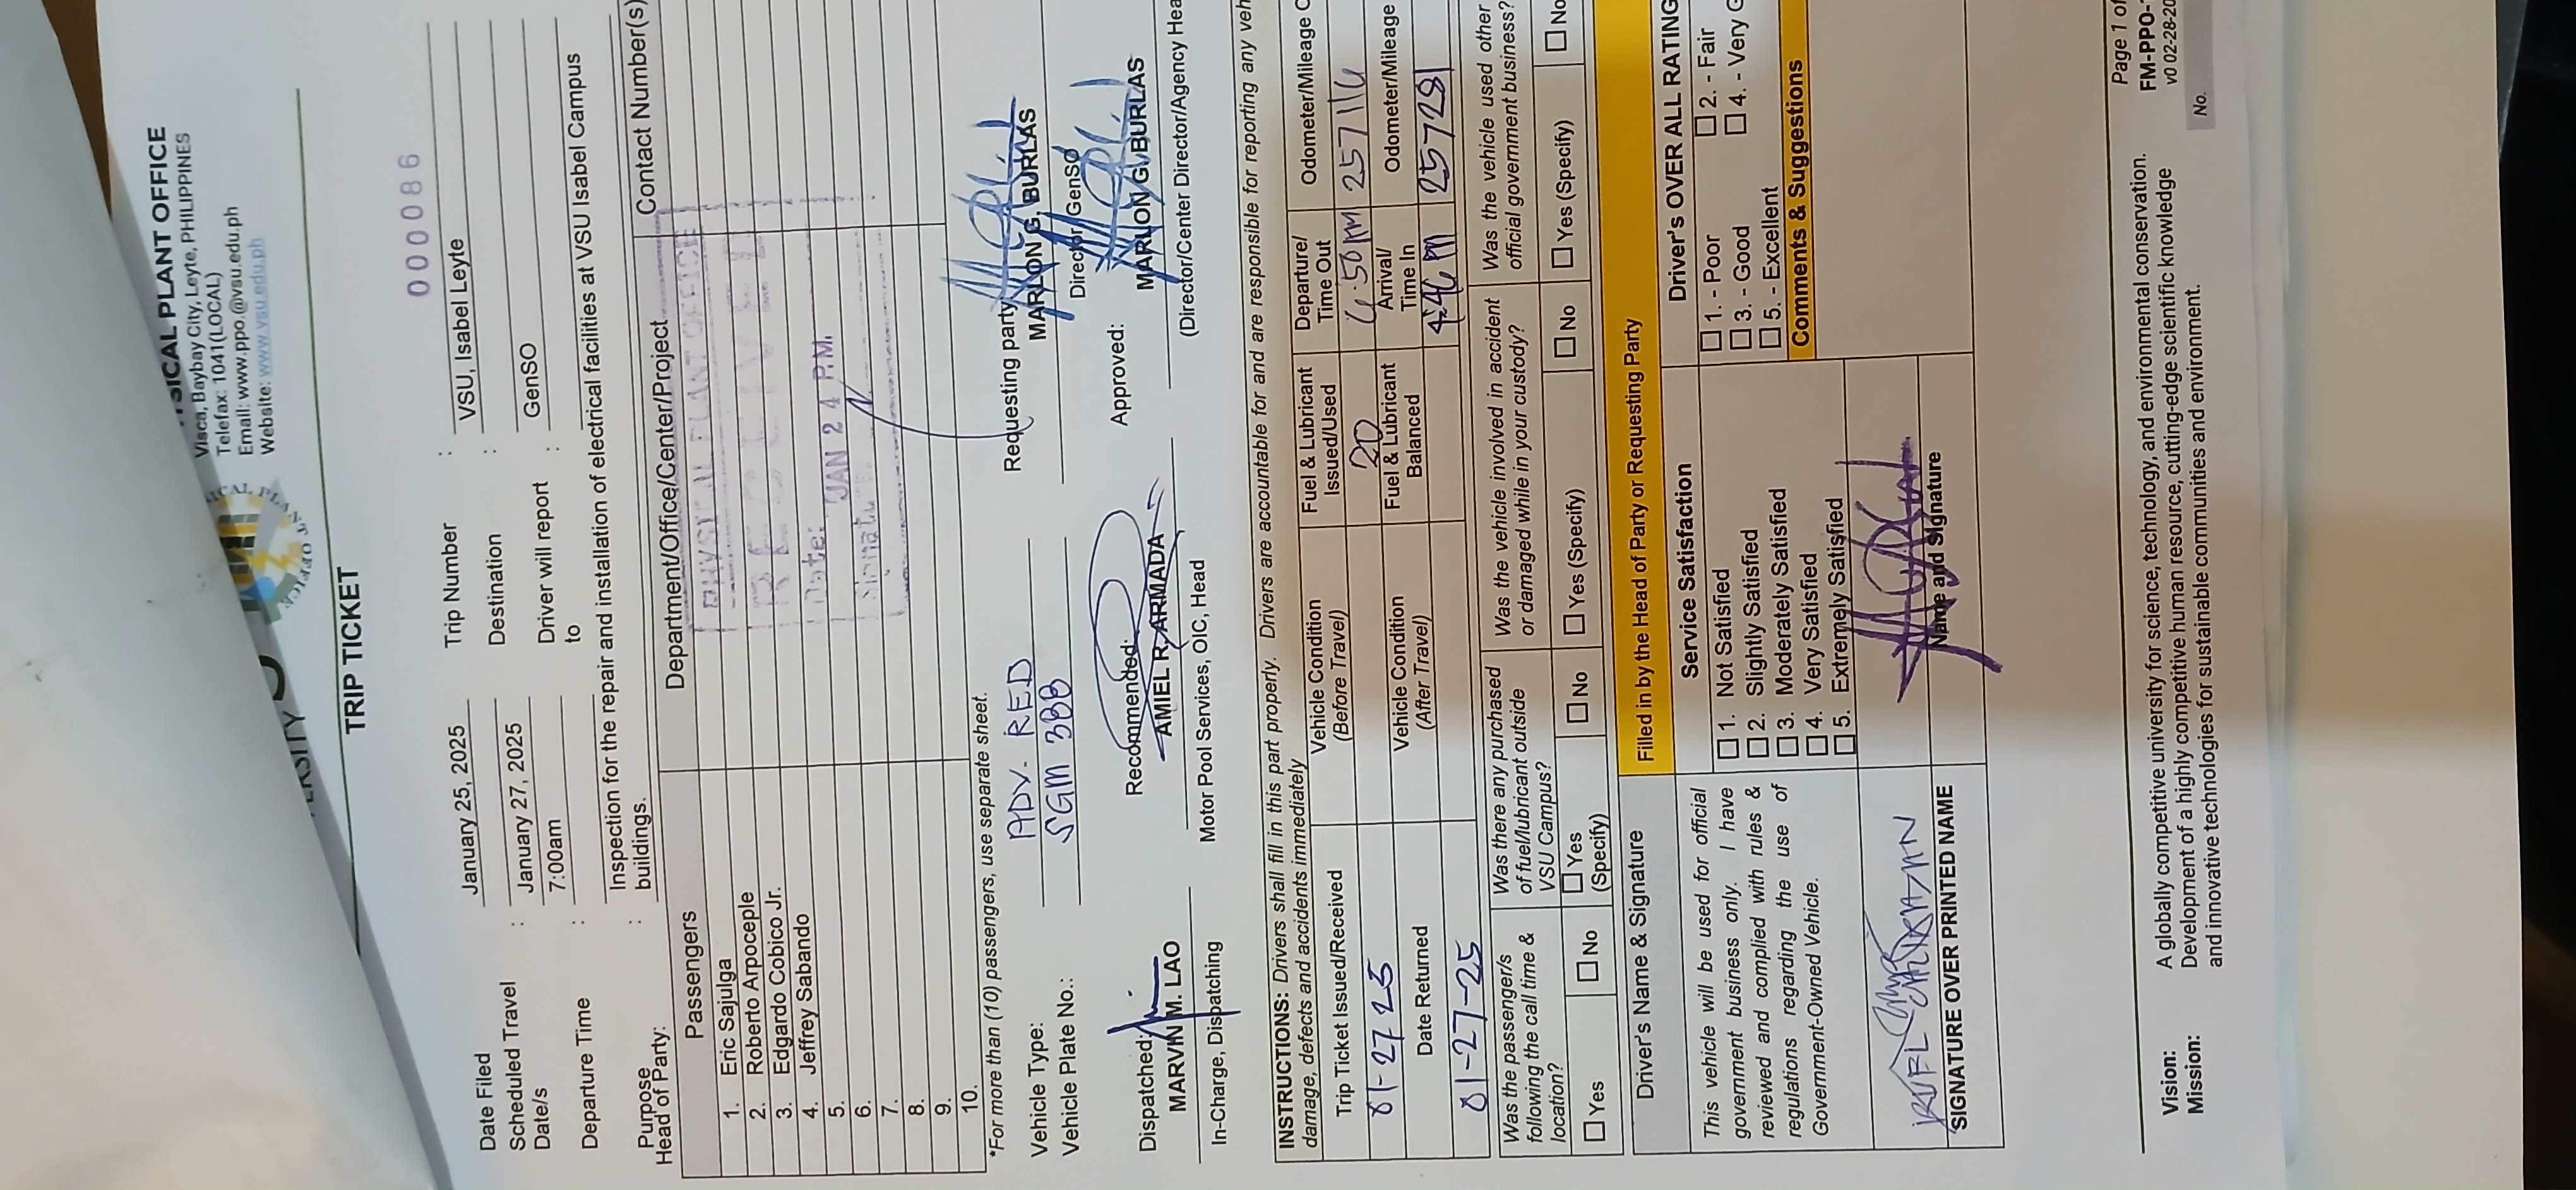 PHYSICAL PLANT OFFICE
Visca, Baybay City, Leyte, PHILIPPINES
Telefax: 1041(LOCAL)
Email: www.ppo.@vsu.edu.ph
Website: www.vsu.edu.ph
TRIP TICKET
000086
Date Filed January 25, 2025 Trip Number : VSU, Isabel Leyte
Scheduled Travel Date/s : January 27, 2025 Destination : GenSO
Departure Time : 7:00am Driver will report to :
Purpose : Inspection for the repair and installation of electrical facilities at VSU Isabel Campus
buildings.
Head of Party:
Passengers Department/Office/Center/Project Contact Number(s)
1. Eric Sajulga
2. Roberto Arpoceple
3. Edgardo Cobico Jr.
4. Jeffrey Sabando
5.
6.
7.
8.
9.
10.
PHYSICAL PLANT OFFICE
RECEIVED
Date: JAN 24 P.M.
*For more than (10) passengers, use separate sheet.
Vehicle Type: ADV. RED
Vehicle Plate No.: SGM 388
Requesting party
MARLON G. BURLAS
Director GenSO
Dispatched:
MARVIN M. LAO
In-Charge, Dispatching
Recommended:
AMIEL R. ARMADA
Motor Pool Services, OIC, Head
Approved:
MARLON G. BURLAS
(Director/Center Director/Agency Hea
INSTRUCTIONS: Drivers shall fill in this part properly. Drivers are accountable for and are responsible for reporting any veh
damage, defects and accidents immediately
Trip Ticket Issued/Received Vehicle Condition (Before Travel) Fuel & Lubricant Issued/Used Departure/ Time Out Odometer/Mileage O
01-27 25 20 25711
Date Returned Vehicle Condition (After Travel) Fuel & Lubricant Balanced Arrival/ Time In Odometer/Mileage
01-27-25 257281
Was the passenger/s following the call time & location?
Was there any purchased of fuel/lubricant outside VSU Campus?
Was the vehicle involved in accident or damaged while in your custody?
Was the vehicle used other official government business?
Yes No Yes (Specify) No Yes (Specify) No Yes (Specify) No
Driver's Name & Signature Filled in by the Head of Party or Requesting Party
This vehicle will be used for official
government business only. I have
reviewed and complied with rules &
regulations regarding the use of
Government-Owned Vehicle.
SIGNATURE OVER PRINTED NAME
Service Satisfaction
1. Not Satisfied
2. Slightly Satisfied
3. Moderately Satisfied
4. Very Satisfied
5. Extremely Satisfied
Name and Signature
Driver's OVER ALL RATING
1. - Poor 2. - Fair
3. - Good 4. - Very G
5. - Excellent
Comments & Suggestions
Vision: A globally competitive university for science, technology, and environmental conservation.
Mission: Development of a highly competitive human resource, cutting-edge scientific knowledge
and innovative technologies for sustainable communities and environment.
Page 1 of
FM-PPO-
v0 02-28-20
No.